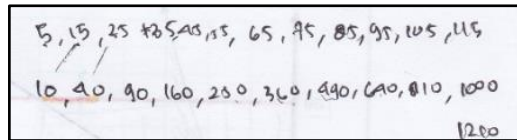 5, 15, 25 35, 45, 55, 65, 75, 85, 95, 105, 115
10, 40, 90, 160, 250, 360, 490, 640, 810, 1000
1200